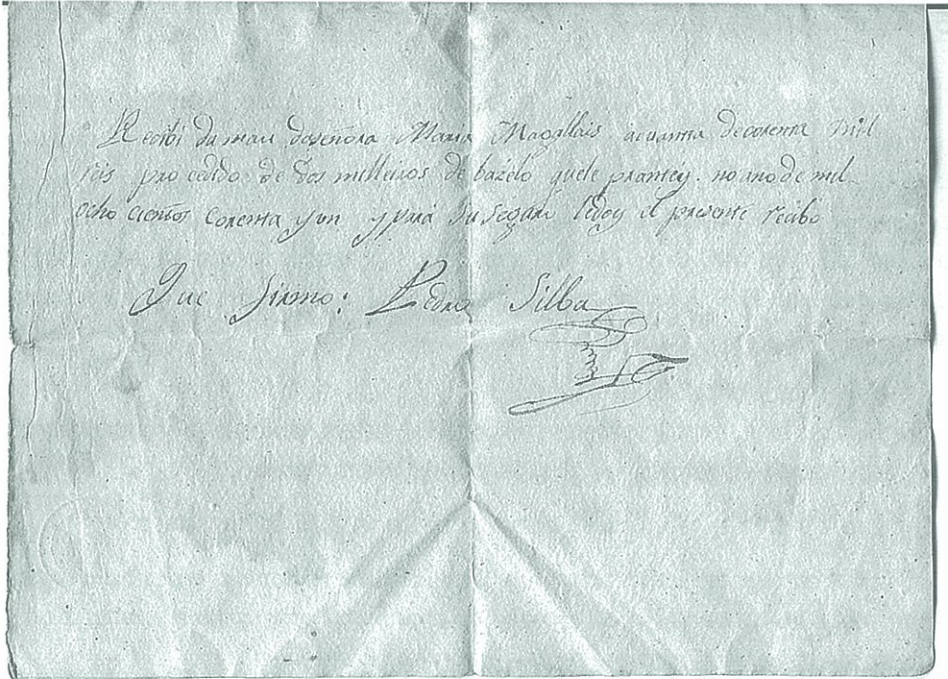 Recibi da mau dosenora Maria Magallais acuantia decorenta mil
reis pro cedido de dos milleiros de bazelo quele prantéy. no ano de mil
ocho cientos corenta y un y para su segaro ledoy el presente recibo
Que firmo: Pedro Silba